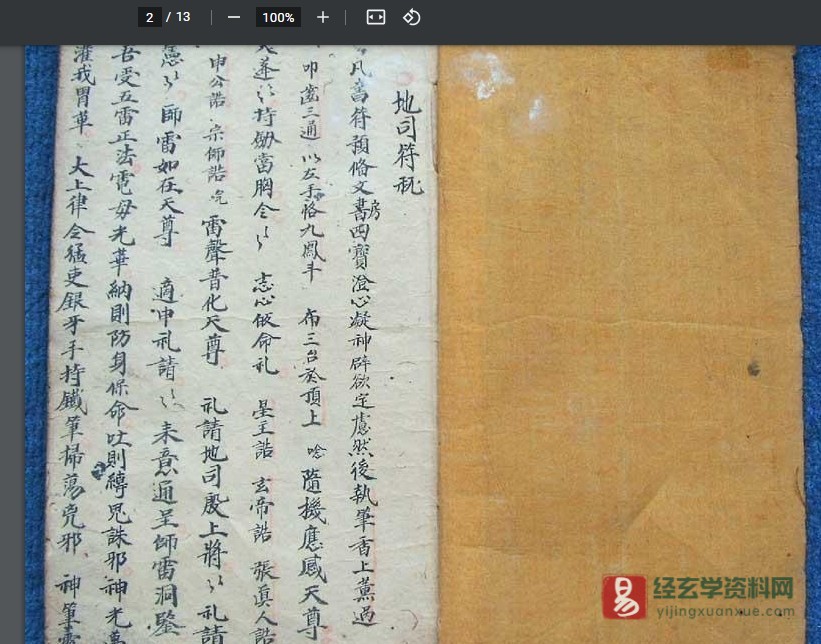 2 / 13
100%
地司符秘
凡書符預俻文書房四寶澄心凝神辟欲定慮然後執筆香上薰過
叩齒三通以左手恪九鳳斗 布三台於頂上 唸隨機應感天尊
遂〻持劾當胸念〻 志心皈命礼 星主誥 玄帝誥 張真人誥
申公誥 宗師誥 雷聲普化天尊 礼請地司殷上將〻 礼請
〻 師雷如在天尊 適申礼請〻 来意通呈師雷洞鑒
吾受五雷正法電母光華納則防身保命吐則縛鬼誅邪神光萬
灌我胃草 大上律令猛吏銀牙手持鐵筆掃蕩克邪 神筆
易
经玄学资料网
yijingxuanxue.com